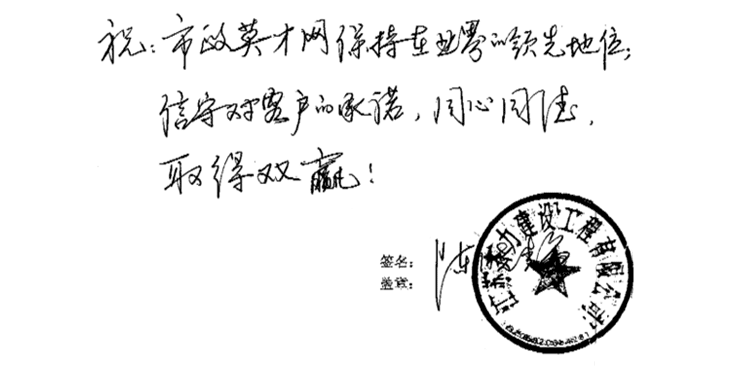 祝：市政英才网保持在业界的领先地位；
信守对客户的承诺，同心同德，
取得双赢！
签名：陈
盖章：
建设工程有限公司